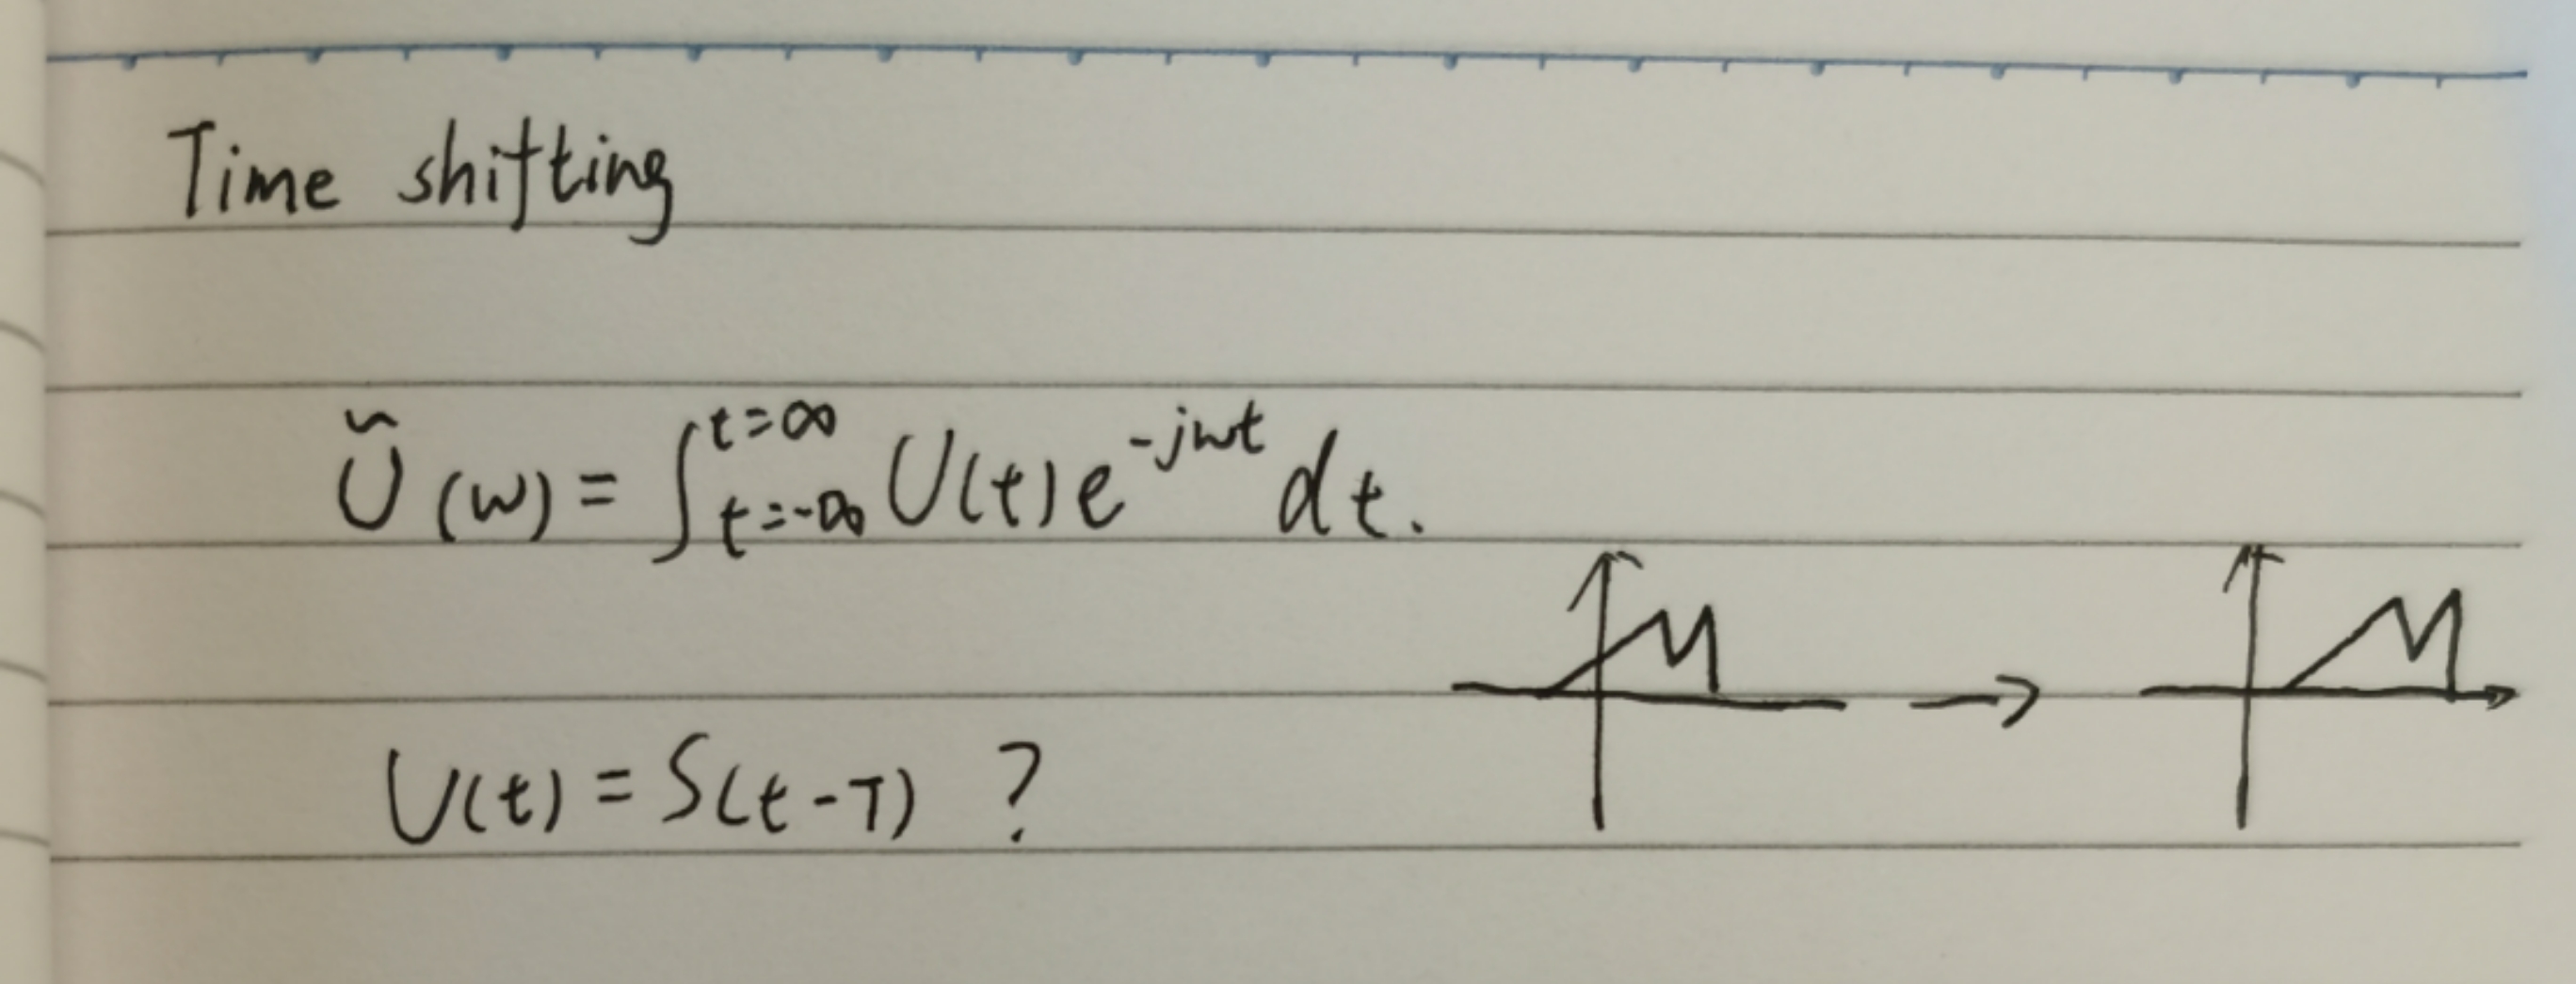 Time shifting
Ũ(w) = ∫_{t=-∞}^{t=∞} U(t) e^{-jwt} dt.
U(t) = S(t-T) ?